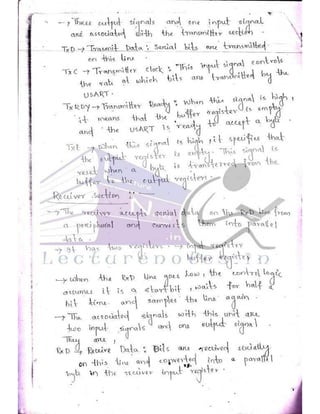 → Three output signals and one input signal
are associated with the transmitter section.
TxD → Transmit Data : Serial bits are transmitted
on this line.
TxC → Transmitter clock : This input signal controls
the rate at which bits are transmitted by the
USART.
TxRDY → Transmitter Ready : When this signal is high,
it means that the buffer register is empty
and the USART is ready to accept a byte.
→ When this signal is high, it specifies that
the output register is empty. This signal is
reset when a byte is transferred from the
buffer to the output register.
Receiver Section :
→ The receiver accepts serial data on the RxD line from
a peripheral and converts them into parallel
data.
→ It has two registers → Input register
buffer register
Lecturenotes.in
→ When the RxD line goes low, the control logic
assumes it is a start bit, waits for half a
bit time and samples the line again.
→ The associated signals with this unit are
two input signals and one output signal.
They are,
RxD → Receive Data : Bits are received serially
on this line and converted into a parallel
byte in the receiver input register.